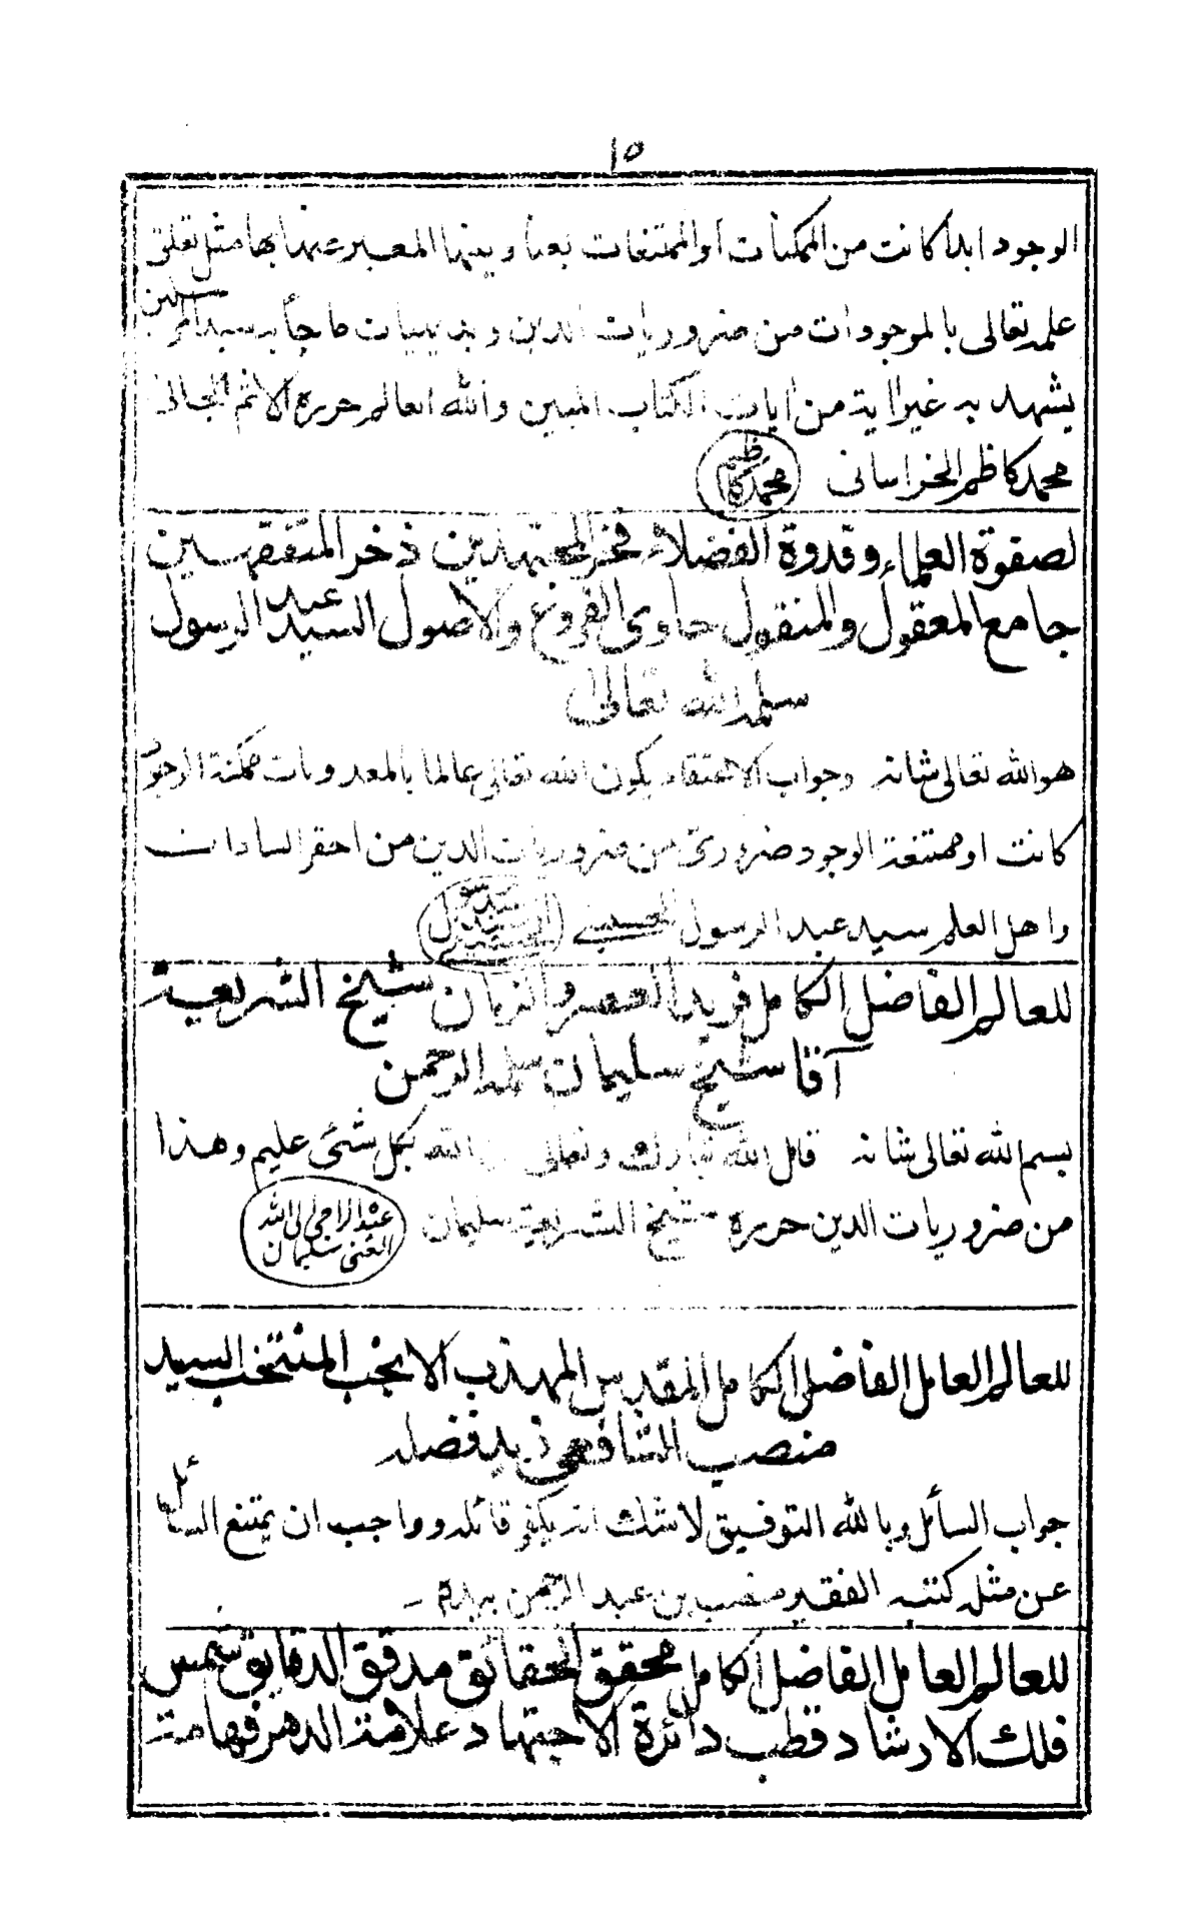 ١٥
الوجود ابدا كانت من الممكنات او الممتنعات بعنا وينها المعبر عنها بها مثل تعلق
علمه تعالى بالموجودات من ضروريات الدين وبديهيات ما جاء به سيد المرسلين
يشهد به غير اية من ايات الكتاب المبين والله العالم حرره الاثم الجانى
محمد كاظم الخراسانى محمد كاظم
لصفوة العلماء وقدوة الفضلاء فخر المجتهدين ذخر المتفقهين
جامع المعقول والمنقول حاوى الفروع والاصول السيد عبد الرسول
سلمه الله تعالى
هو الله تعالى شانه وجواب الاعتقاد بكون الله تعالى عالما بالمعدومات ممكنة الوجود
كانت او ممتنعة الوجود ضرورى من ضروريات الدين من احقر السادات
واهل العلم سيد عبد الرسول الحسينى
للعالم الفاضل الكامل فريد العصر والزمان شيخ الشريعة
آقا شيخ سليمان سلمه الرحمن
بسم الله تعالى شانه قال الله تبارك وتعالى ان الله بكل شئ عليم وهذا
من ضروريات الدين حرره شيخ الشريعة سليمان عبده الراجى الى الله الغنى سليمان
للعالم العامل الفاضل الكامل المقدس المهذب الانجب المنتخب السيد
منصب الشافعى زيد فضله
جواب السائل وبالله التوفيق لاشك انه يكفر قائله وواجب ان يمتنع السائل
عن مثله كتبه الفقير منصب بن عبد الرحمن بيده
للعالم العامل الفاضل الكامل محقق الحقائق مدقق الدقايق شمس
فلك الارشاد قطب دائرة الاجتهاد علامة الدهر فهامة